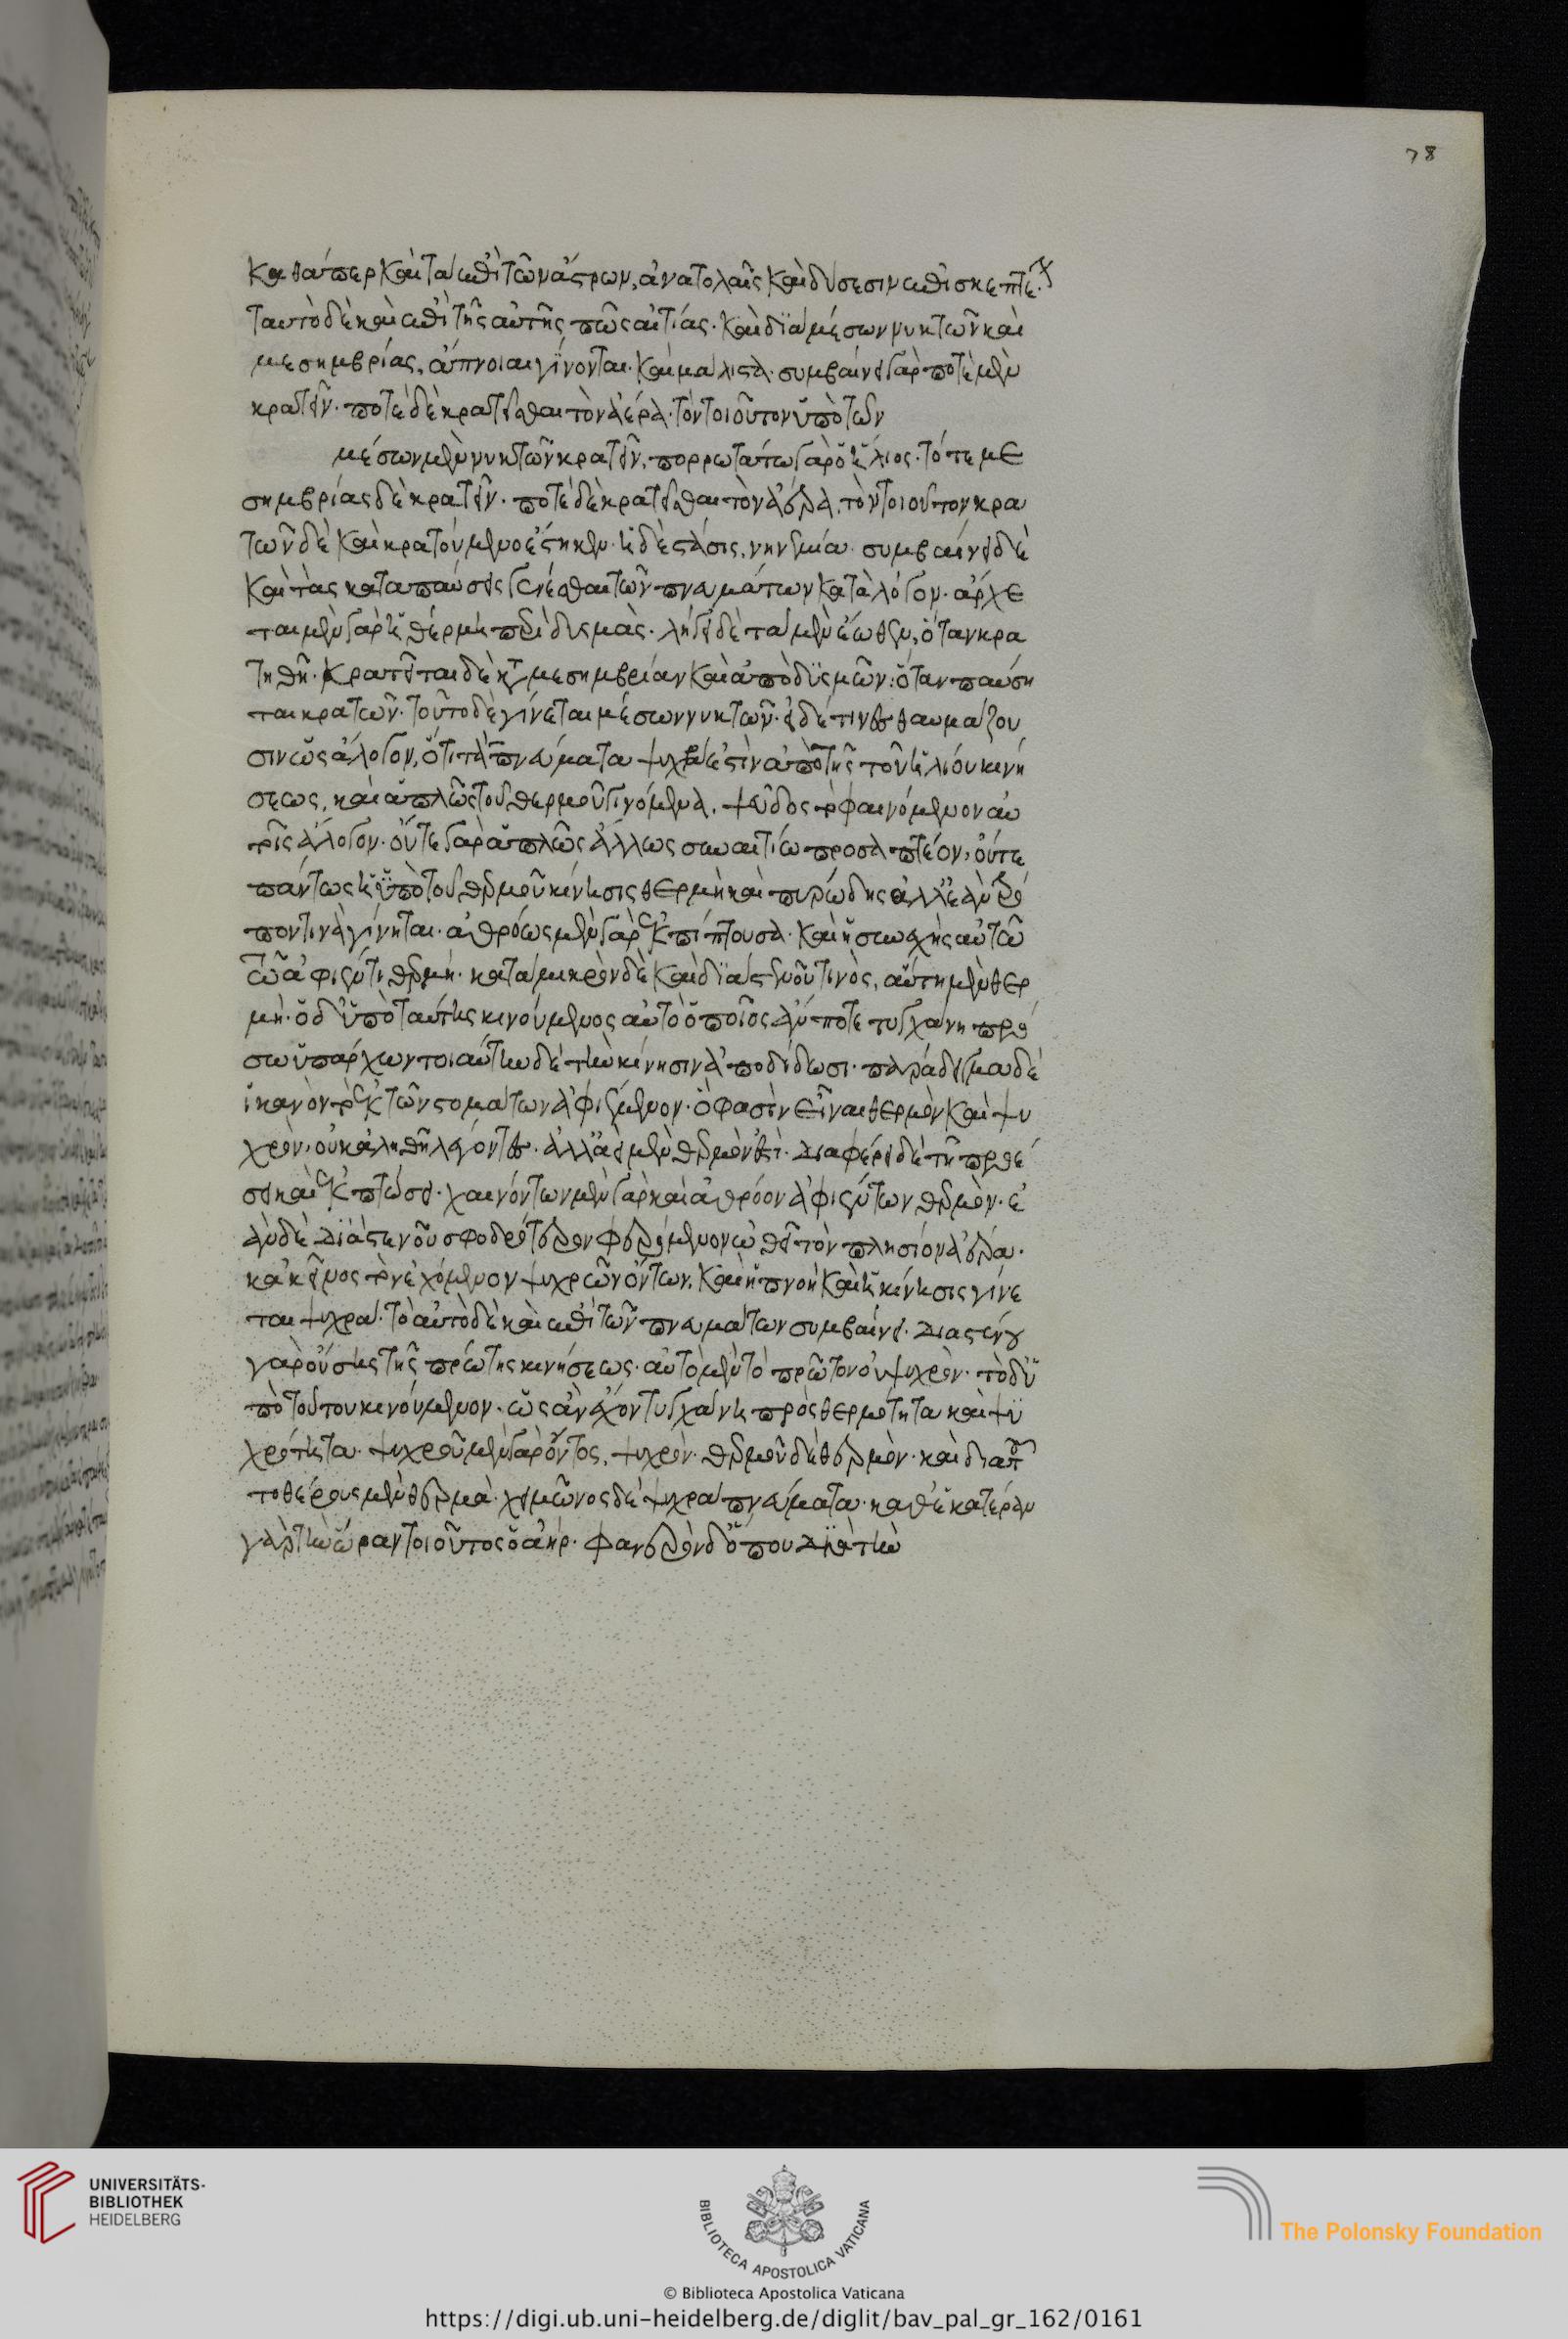 78
καθάπερ καὶ τὰ ἐπὶ τῶν ἄστρων, ἀνατολαῖς καὶ δύσεσιν ἐπισκεπτέον
ταυτὸ δὲ καὶ ἐπὶ τῆς αὐτῆς πῶς αἰτίας. καὶ διὰ μέσων νυκτῶν καὶ
μεσημβρίας, ἄπνοιαι γίνονται. καὶ μάλιστα. συμβαίνει γὰρ ποτὲ μὲν
κρατεῖν. ποτὲ δὲ κρατεῖσθαι τὸν ἀέρα. τὸν τοιοῦτον ὑπὸ τῶν
μέσων μὲν νυκτῶν κρατεῖν. πορρωτάτω γὰρ ὁ ἥλιος. τότε με
σημβρίας δὲ κρατεῖν. ποτὲ δὲ κρατεῖσθαι τὸν ἀέρα, τὸν τοιοῦτον κρα
τῶν δὲ καὶ κρατούμενος ἕστηκεν. ἡ δὲ στάσις, νηνεμία. συμβαίνει δὲ
καὶ τὰς καταπαύσεις γενέσθαι τῶν πνευμάτων κατὰ λόγον. ἄρχε
ται μὲν γὰρ ἡ θέρμη περὶ δυσμὰς. λήγει δὲ τὰ μὲν ἕωθεν, ὅταν κρα
τηθῇ. κρατεῖται δὲ κατὰ μεσημβρίαν καὶ ἀπὸ δυσμῶν: ὅταν παύση
ται κρατῶν. τοῦτο δὲ γίνεται μέσων νυκτῶν. εἰ δέ τινες θαυμάζου
σιν ὡς ἄλογον, ὅτι τὰ πνεύματα ψυχρά ἐστὶν ἀπὸ τῆς τοῦ ἡλίου κινή
σεως, καὶ ἁπλῶς τοῦ θερμοῦ γινόμενα. ψεῦδος τὸ φαινόμενον αὐ
τοῖς ἄλογον. οὔτε γὰρ ἁπλῶς ἄλλως συναιτίω προσαπτέον, οὔτε
πάντως ἡ ὑπὸ τοῦ θερμοῦ κίνησις θερμὴ καὶ πυρώδης ἀλλ' ἐὰν τρό
πον τινὰ γίνηται. ἀθρόως μὲν γὰρ ἐκπίπτουσα. καὶ ἡ συνεχὴς αὐτῶ
τῶ ἀφιέντι θερμή. κατὰ μικρὸν δὲ καὶ διὰ στενοῦ τινὸς, αὕτη μὲν θερ
μή. ὁ δ' ὑπὸ ταύτης κινούμενος αὐτὸ ὁποῖος ἄν ποτε τυγχάνη πρό
σω ὑπάρχων τοιαύτην δὲ τὴν κίνησιν ἀποδίδωσι. παράδειγμα δὲ
ἱκανὸν τὸ ἐκ τῶν στομάτων ἀφιέμενον. ὃ φασὶν εἶναι θερμὸν καὶ ψυ
χρὸν, οὐκ ἀληθῆ λέγοντες. ἀλλ' ἀεὶ μὲν θερμόν ἐστι. διαφέρει δὲ τῆ προέ
σει καὶ ἐκπτώσει. χαινόντων μὲν γὰρ καὶ ἀθρόον ἀφιέντων θερμὸν. ἐ
ὰν δὲ διὰ στενοῦ σφοδρότερον φερόμενον ὠθεῖ τὸν πλησίον ἀέρα.
κἀκεῖνος τὸν ἐχόμενον ψυχρῶν ὄντων, καὶ ἡ πνοὴ καὶ ἡ κίνησις γίνε
ται ψυχρά. τὸ αὐτὸ δὲ καὶ ἐπὶ τῶν πνευμάτων συμβαίνει. διὰ στενοῦ
γὰρ οὔσης τῆς πρώτης κινήσεως. αὐτὸ μὲν τὸ πρῶτον οὐ ψυχρὸν. τὸ δ' ὑ
πὸ τούτου κινούμενον. ὡς ἂν ἔχον τυγχάνη πρὸς θερμότητα καὶ ψυ
χρότητα. ψυχροῦ μὲν γὰρ ὄντος, ψυχρόν. θερμοῦ δὲ θερμὸν. καὶ διὰ τοῦ
το θέρους μὲν θερμὰ. χειμῶνος δὲ ψυχρὰ πνεύματα. καθ' ἑκατέραν
γὰρ τὴν ὥραν τοιοῦτος ὁ ἀήρ. φανερὸν δ' ὅπου διὰ τὴν
UNIVERSITÄTS-
BIBLIOTHEK
HEIDELBERG
BIBLIOTECA APOSTOLICA VATICANA
The Polonsky Foundation
© Biblioteca Apostolica Vaticana
https://digi.ub.uni-heidelberg.de/diglit/bav_pal_gr_162/0161